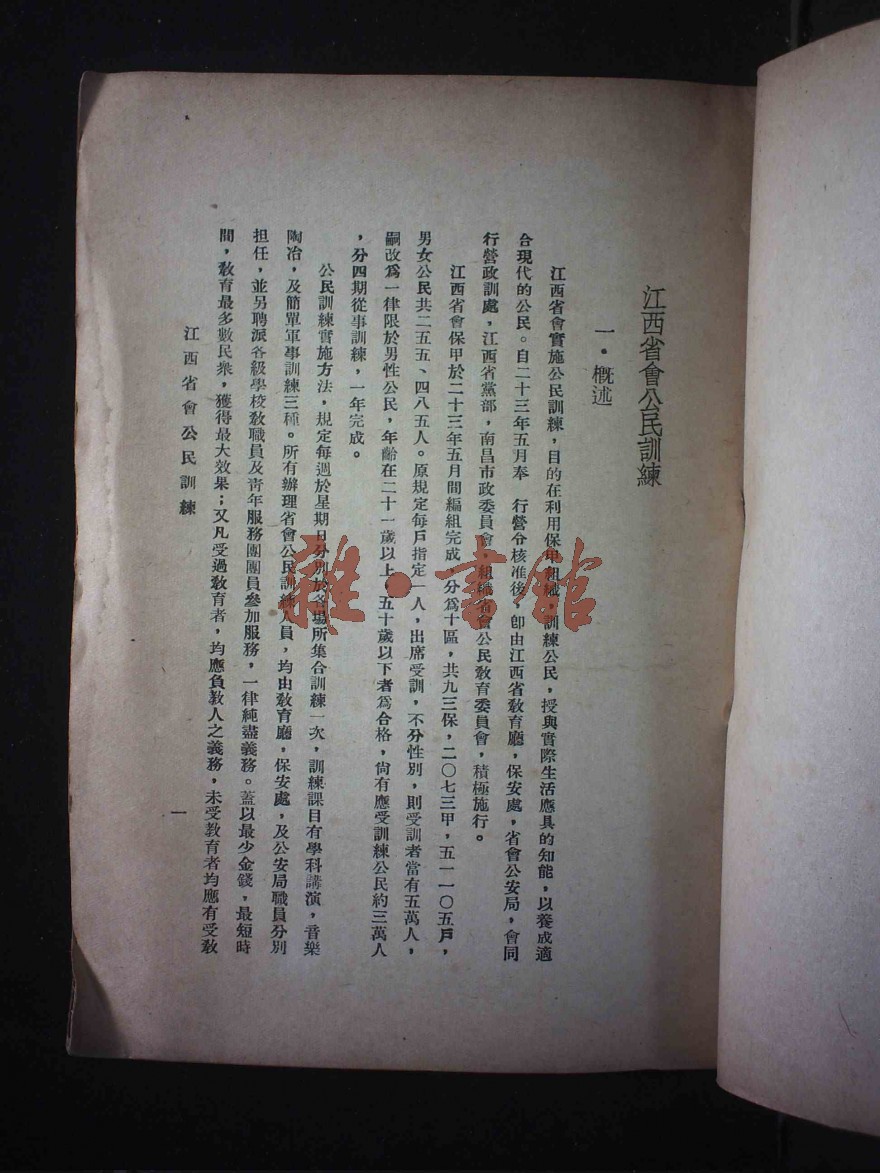 江西省會公民訓練
一・概述
江西省會實施公民訓練，目的在利用保甲組織，訓練公民，授與實際生活應具的知能，以養成適
合現代的公民。自二十三年五月奉　行營令核准後，卽由江西省教育廳，保安處，省會公安局，會同
行營政訓處，江西省黨部，南昌市政委員會，組織省會公民教育委員會，積極施行。
江西省會保甲於二十三年五月間編組完成，分爲十區，共九三保，二〇七三甲，五一一〇五戶，
男女公民共二五五、四八五人。原規定每戶指定一人，出席受訓，不分性別，則受訓者當有五萬人，
嗣改爲一律限於男性公民，年齡在二十一歲以上，五十歲以下者爲合格，尙有應受訓練公民約三萬人
，分四期從事訓練，一年完成。
公民訓練實施方法，規定每週於星期日分別於各場所集合訓練一次，訓練課目有學科講演，音樂
陶冶，及簡單軍事訓練三種。所有辦理省會公民訓練人員，均由教育廳，保安處，及公安局職員分別
担任，並另聘派各級學校教職員及靑年服務團團員參加服務，一律純盡義務。蓋以最少金錢，最短時
間，教育最多數民衆，獲得最大效果；又凡受過教育者，均應負教人之義務，未受教育者均應有受教
江西省會公民訓練
一
雜・書館